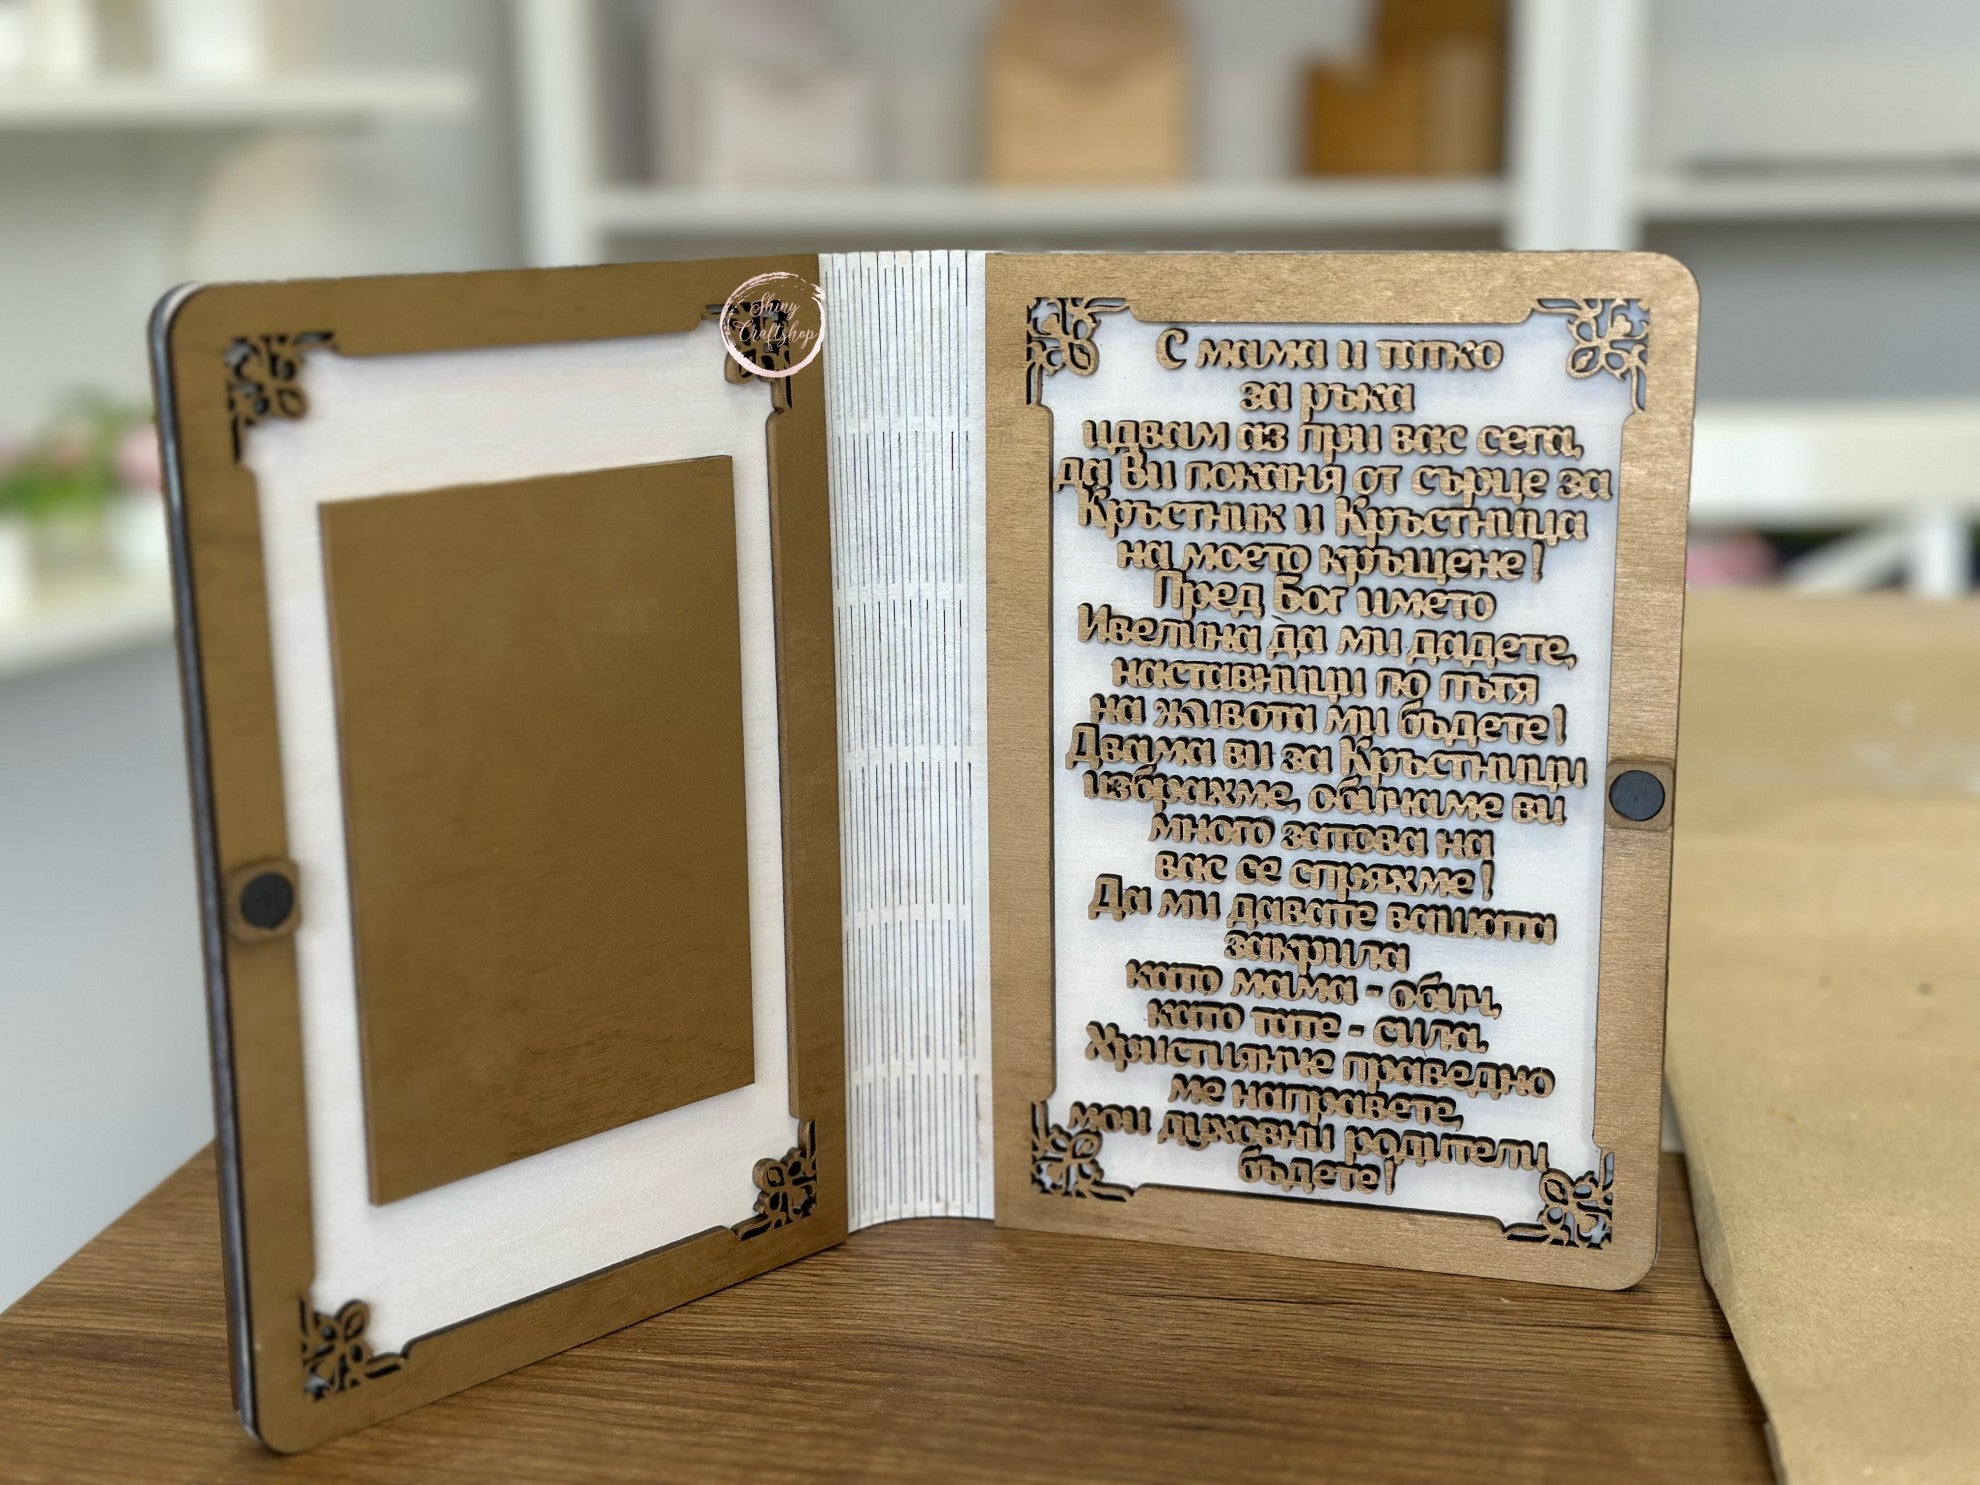 Shiny
Craftshop
С мама и татко
за ръка
идвам аз при вас сега,
да Ви поканя от сърце за
Кръстник и Кръстница
на моето кръщене!
Пред Бог името
Ивелина да ми дадете,
наставници по пътя
на живота ми бъдете!
Двама ви за Кръстници
избрахме, обичаме ви
много затова на
вас се спряхме!
Да ми давате вашата
закрила
като мама - обич,
като тате - сила.
Християнче праведно
ме направете,
мои духовни родители
бъдете!